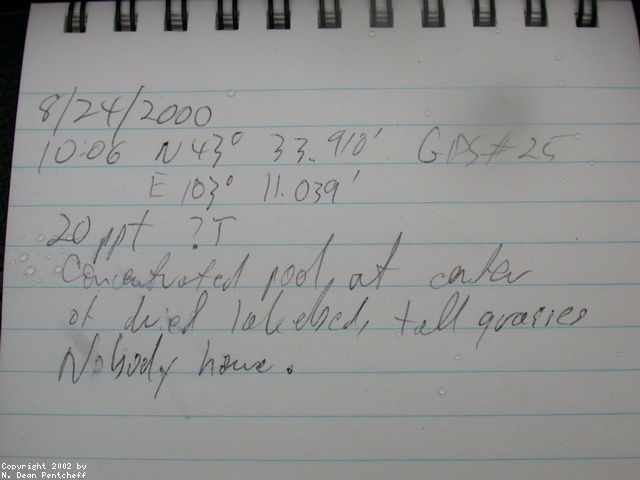 8/24/2000
10:06 N 43° 33.910' GPS# 25
E 103° 11.039'
20 ppt ?T
Concentrated pool, at center
of dried lakebed, tall grasses
Nobody home.
Copyright 2002 by
N. Dean Pentcheff